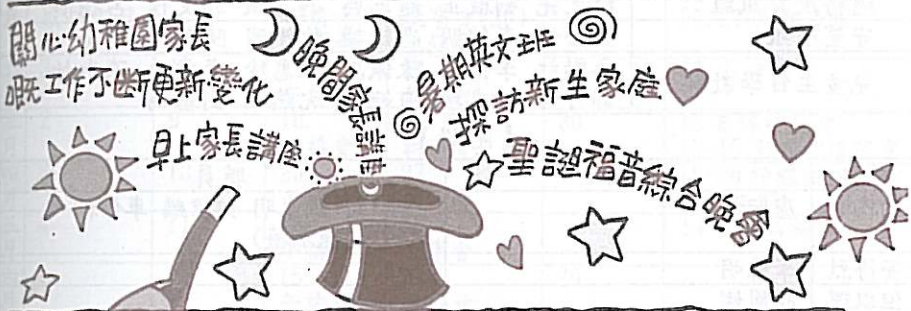 關心幼稚園家長
嘅工作不斷更新變化
早上家長講座
晚間家長講座
暑期英文班
探訪新生家庭
聖誕福音綜合晚會